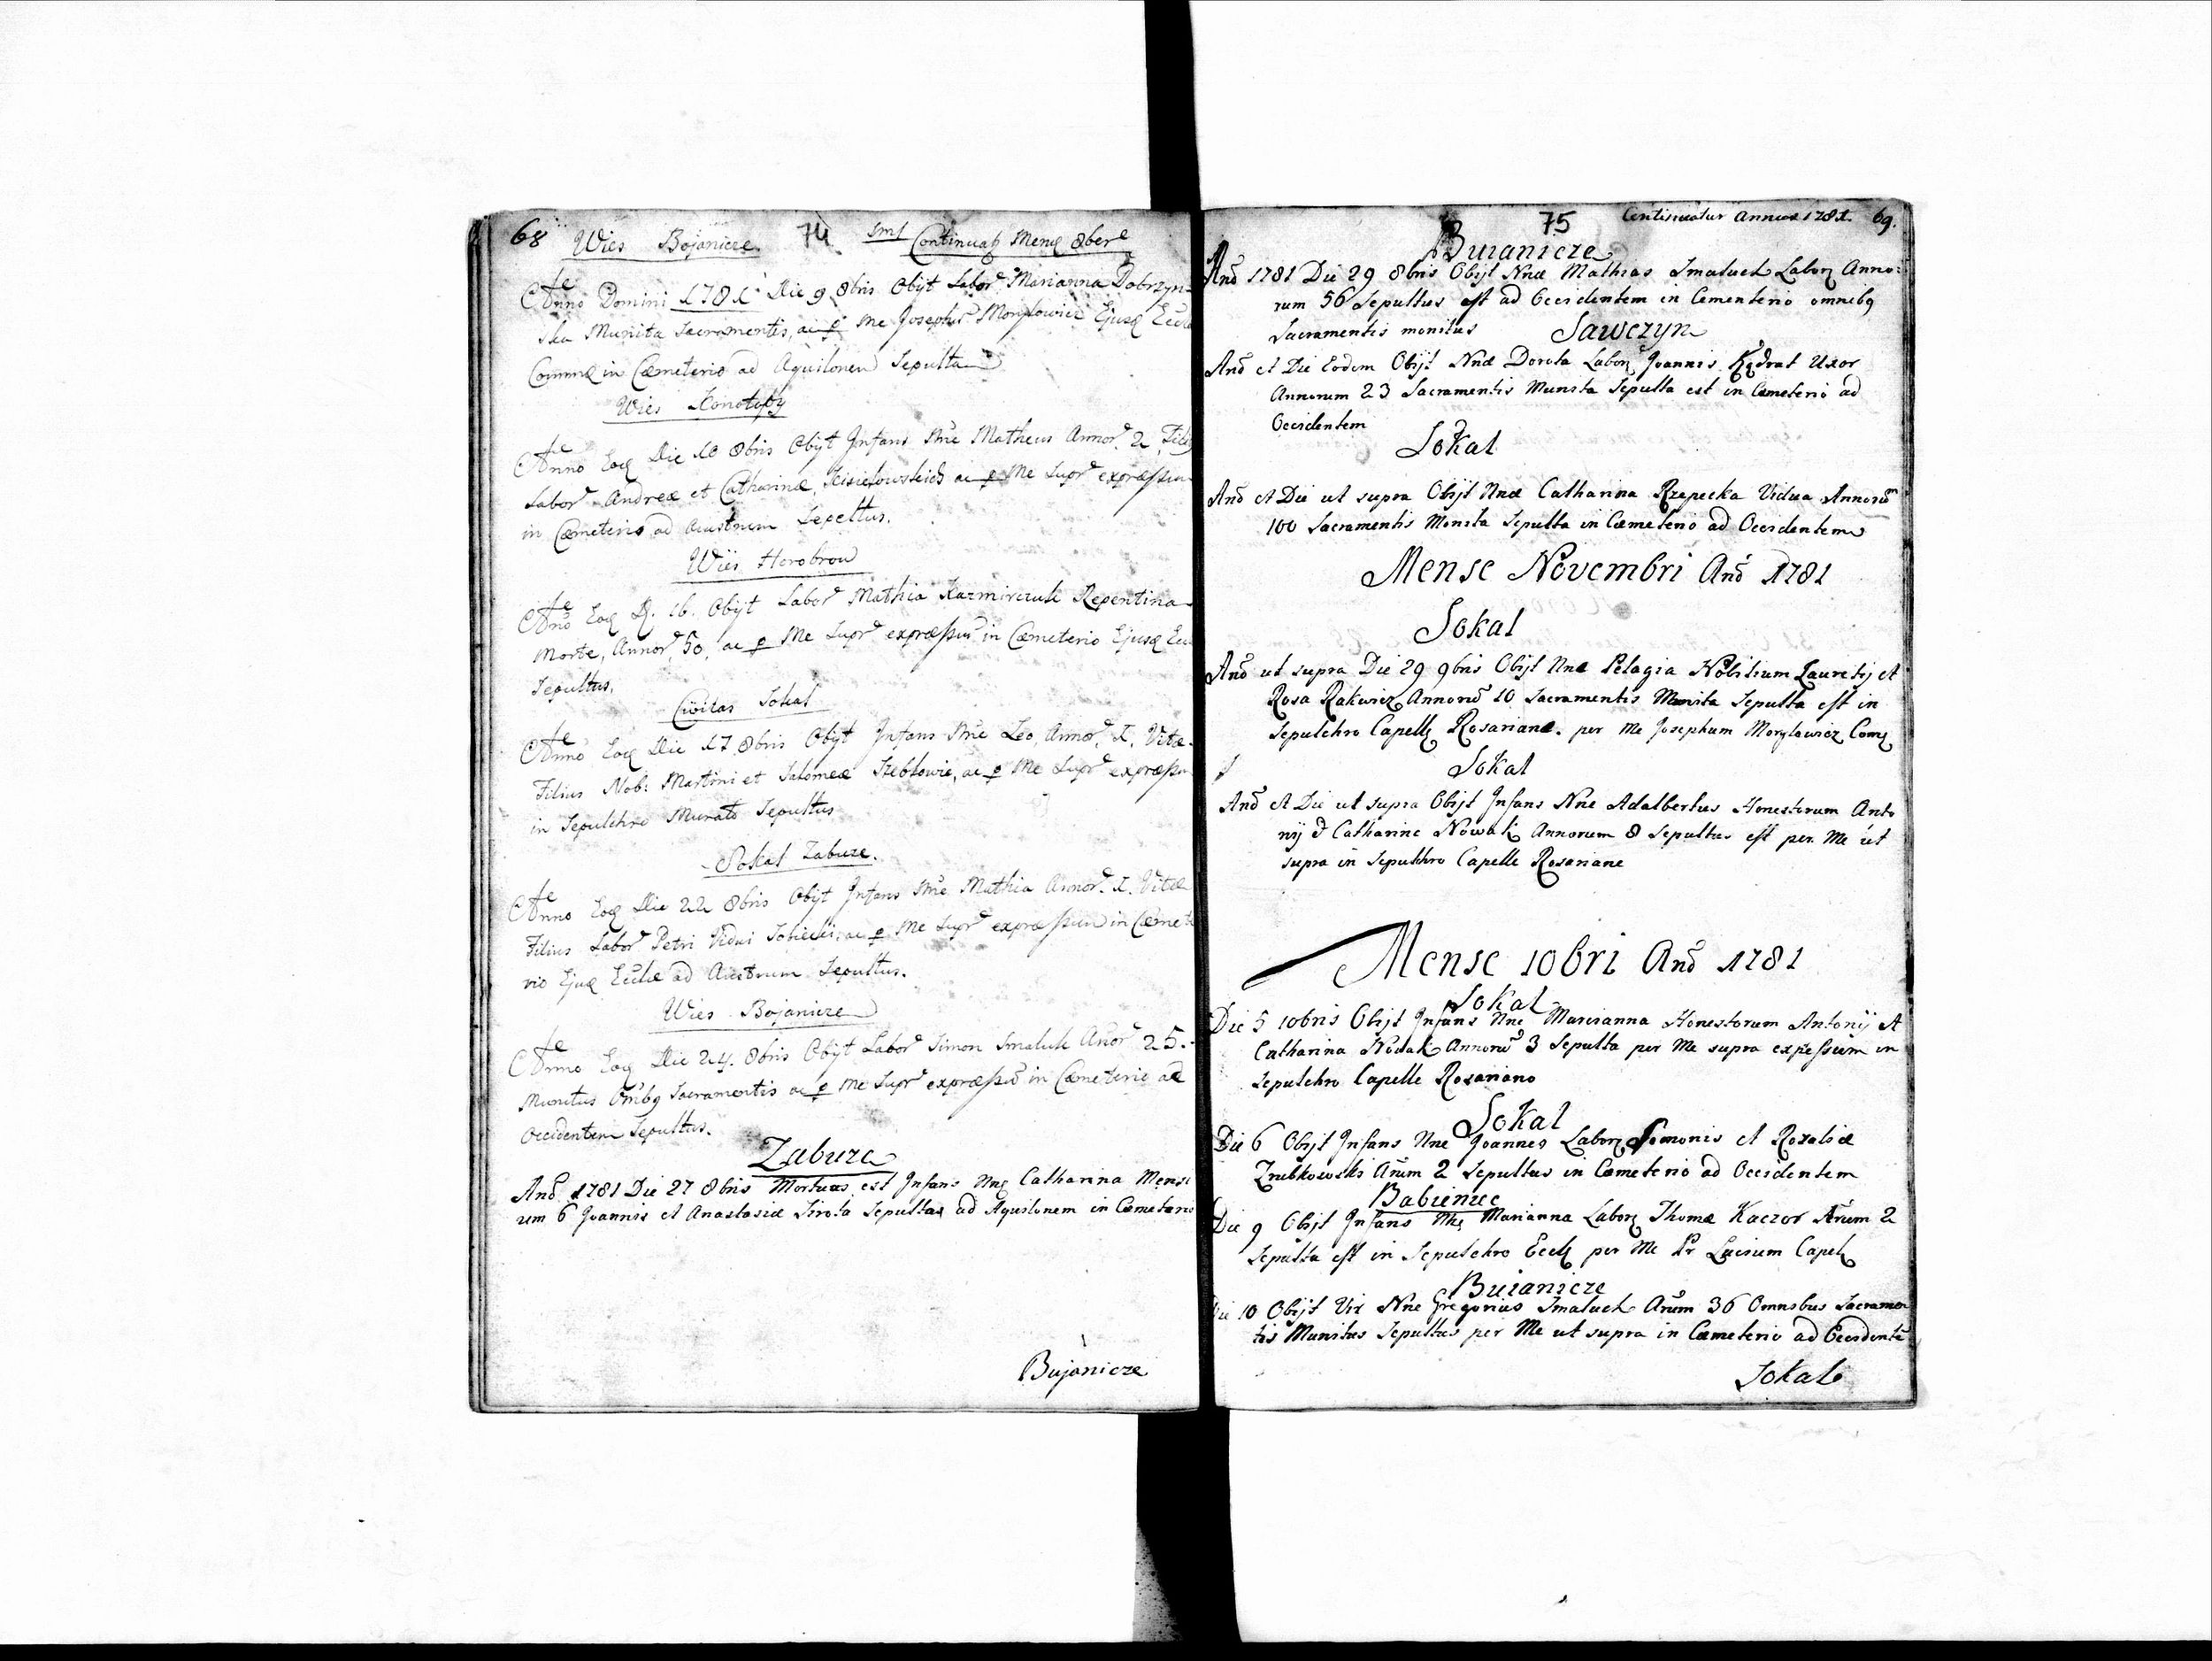 68 Wies Bojanicze 74 Continuat Mense 8bre
Anno Domini 1781 Die 9 8bris Obijt Labor Marianna Dobrzyn
ska Munita Sacramentis, ac p Me Josephū Morylowicz Ejusq
Comm in Cæmeterio ad Aquilonem Sepulta
Wies Konotopy
Anno Eoq Die 10 8bris Obijt Infans Nne Matheus Annor 2
Labor Andreæ et Catharinæ ac p Me Supr expressum
in Cæmeterio ad Austrum Sepultus.
Wies Horobrow
Anno Eoq D. 16. Obijt Labor Mathia Kazmirczuk Repentina
Morte, Annor 50, ac p Me Supr expressū in Cæmeterio Ejusq
Sepultus.
Civitas Sokal
Anno Eoq Die 17 8bris Obijt Infans Nne Leo, Annor 1. Vitæ
Filius Nob: Martini et Salomeæ ac p Me Supr
in Sepulchro Murato Sepultus
Sokal Zabuze.
Anno Eoq Die 22 8bris Obijt Infans Nne Mathia Annor 1. Vitæ
Filius Labor Petri Vidui ac p Me Supr expressum in Cæmete
rio Ejuq Eccliæ ad Austrum Sepultus.
Wies Bojanicze
Anno Eoq Die 24. 8bris Obijt Labor Simon Smaluk Añor 25.
Munitus Omībq Sacramentis ac p Me Supr expressū in Cæmeterio ad
Occidentem Sepultus.
Zabuze
Anõ 1781 Die 27 8bris Mortuus est Infans Nne Catharina Mensi
um 6 Joannis et Anastasiæ Sirota Sepultas ad Aquilonem in Cæmeterio
Bujanicze
75 Continuatur Annus 1781. 69.
Buianicze
Anõ 1781 Die 29 8bris Obijt Nnæ Mathias Smaluch Labor Anno:
rum 56 Sepultus est ad Occidentem in Cementerio omnibq
Sacramentis monitus Sawczyn
Anõ et Die Eodem Obijt Nnæ Dorota Labor Joannis Uxor
Annorum 23 Sacramentis Munita Sepulta est in Cæmeterio ad
Occidentem
Sokal
Anõ et Die ut supra Obijt Nnæ Catharina Rzepecka Vidua Annorū
100 Sacramentis Monita Sepulta in Cæmeterio ad Occidentem
Mense Novembri Anõ 1781
Sokal
Anõ ut supra Die 29 9bris Obijt Nnæ Pelagia Nobilium Lauretij et
Rosa Rakwicz Annorū 10 Sacramentis Munita Sepulta est in
Sepulchro Capellę Rosarianæ. per Me Josephum Morylowicz Comę
Sokal
Anõ et Die ut supra Obijt Infans Nne Adalbertus Honestorum Anto
nij & Catharine Nowak Annorum 8 Sepultus est per Me ut
supra in Sepulchro Capelle Rosariane
Mense 10bri Anõ 1781
Sokal
Die 5 10bris Obijt Infans Nne Marianna Honestorum Antonij et
Catharina Nowak Annorū 3 Sepulta per Me supra expessum in
Sepulchro Capelle Rosariano
Sokal
Die 6 Obijt Infans Nne Joannes Labor Simonis et Rozaliæ
Zrubkowski Añum 2 Sepultus in Cæmeterio ad Occidentem
Babieniec
Die 9 Obijt Infans Nne Marianna Labor Thomæ Kaczor Añum 2
Sepulta est in Sepulchro Eccle per Me Pr Capel
Buianicze
Die 10 Obijt Vir Nne Gregorius Smaluch Añum 36 Omnibus Sacramen
tis Munitus Sepultus per Me ut supra in Cæmeterio ad Occidentē
Sokal